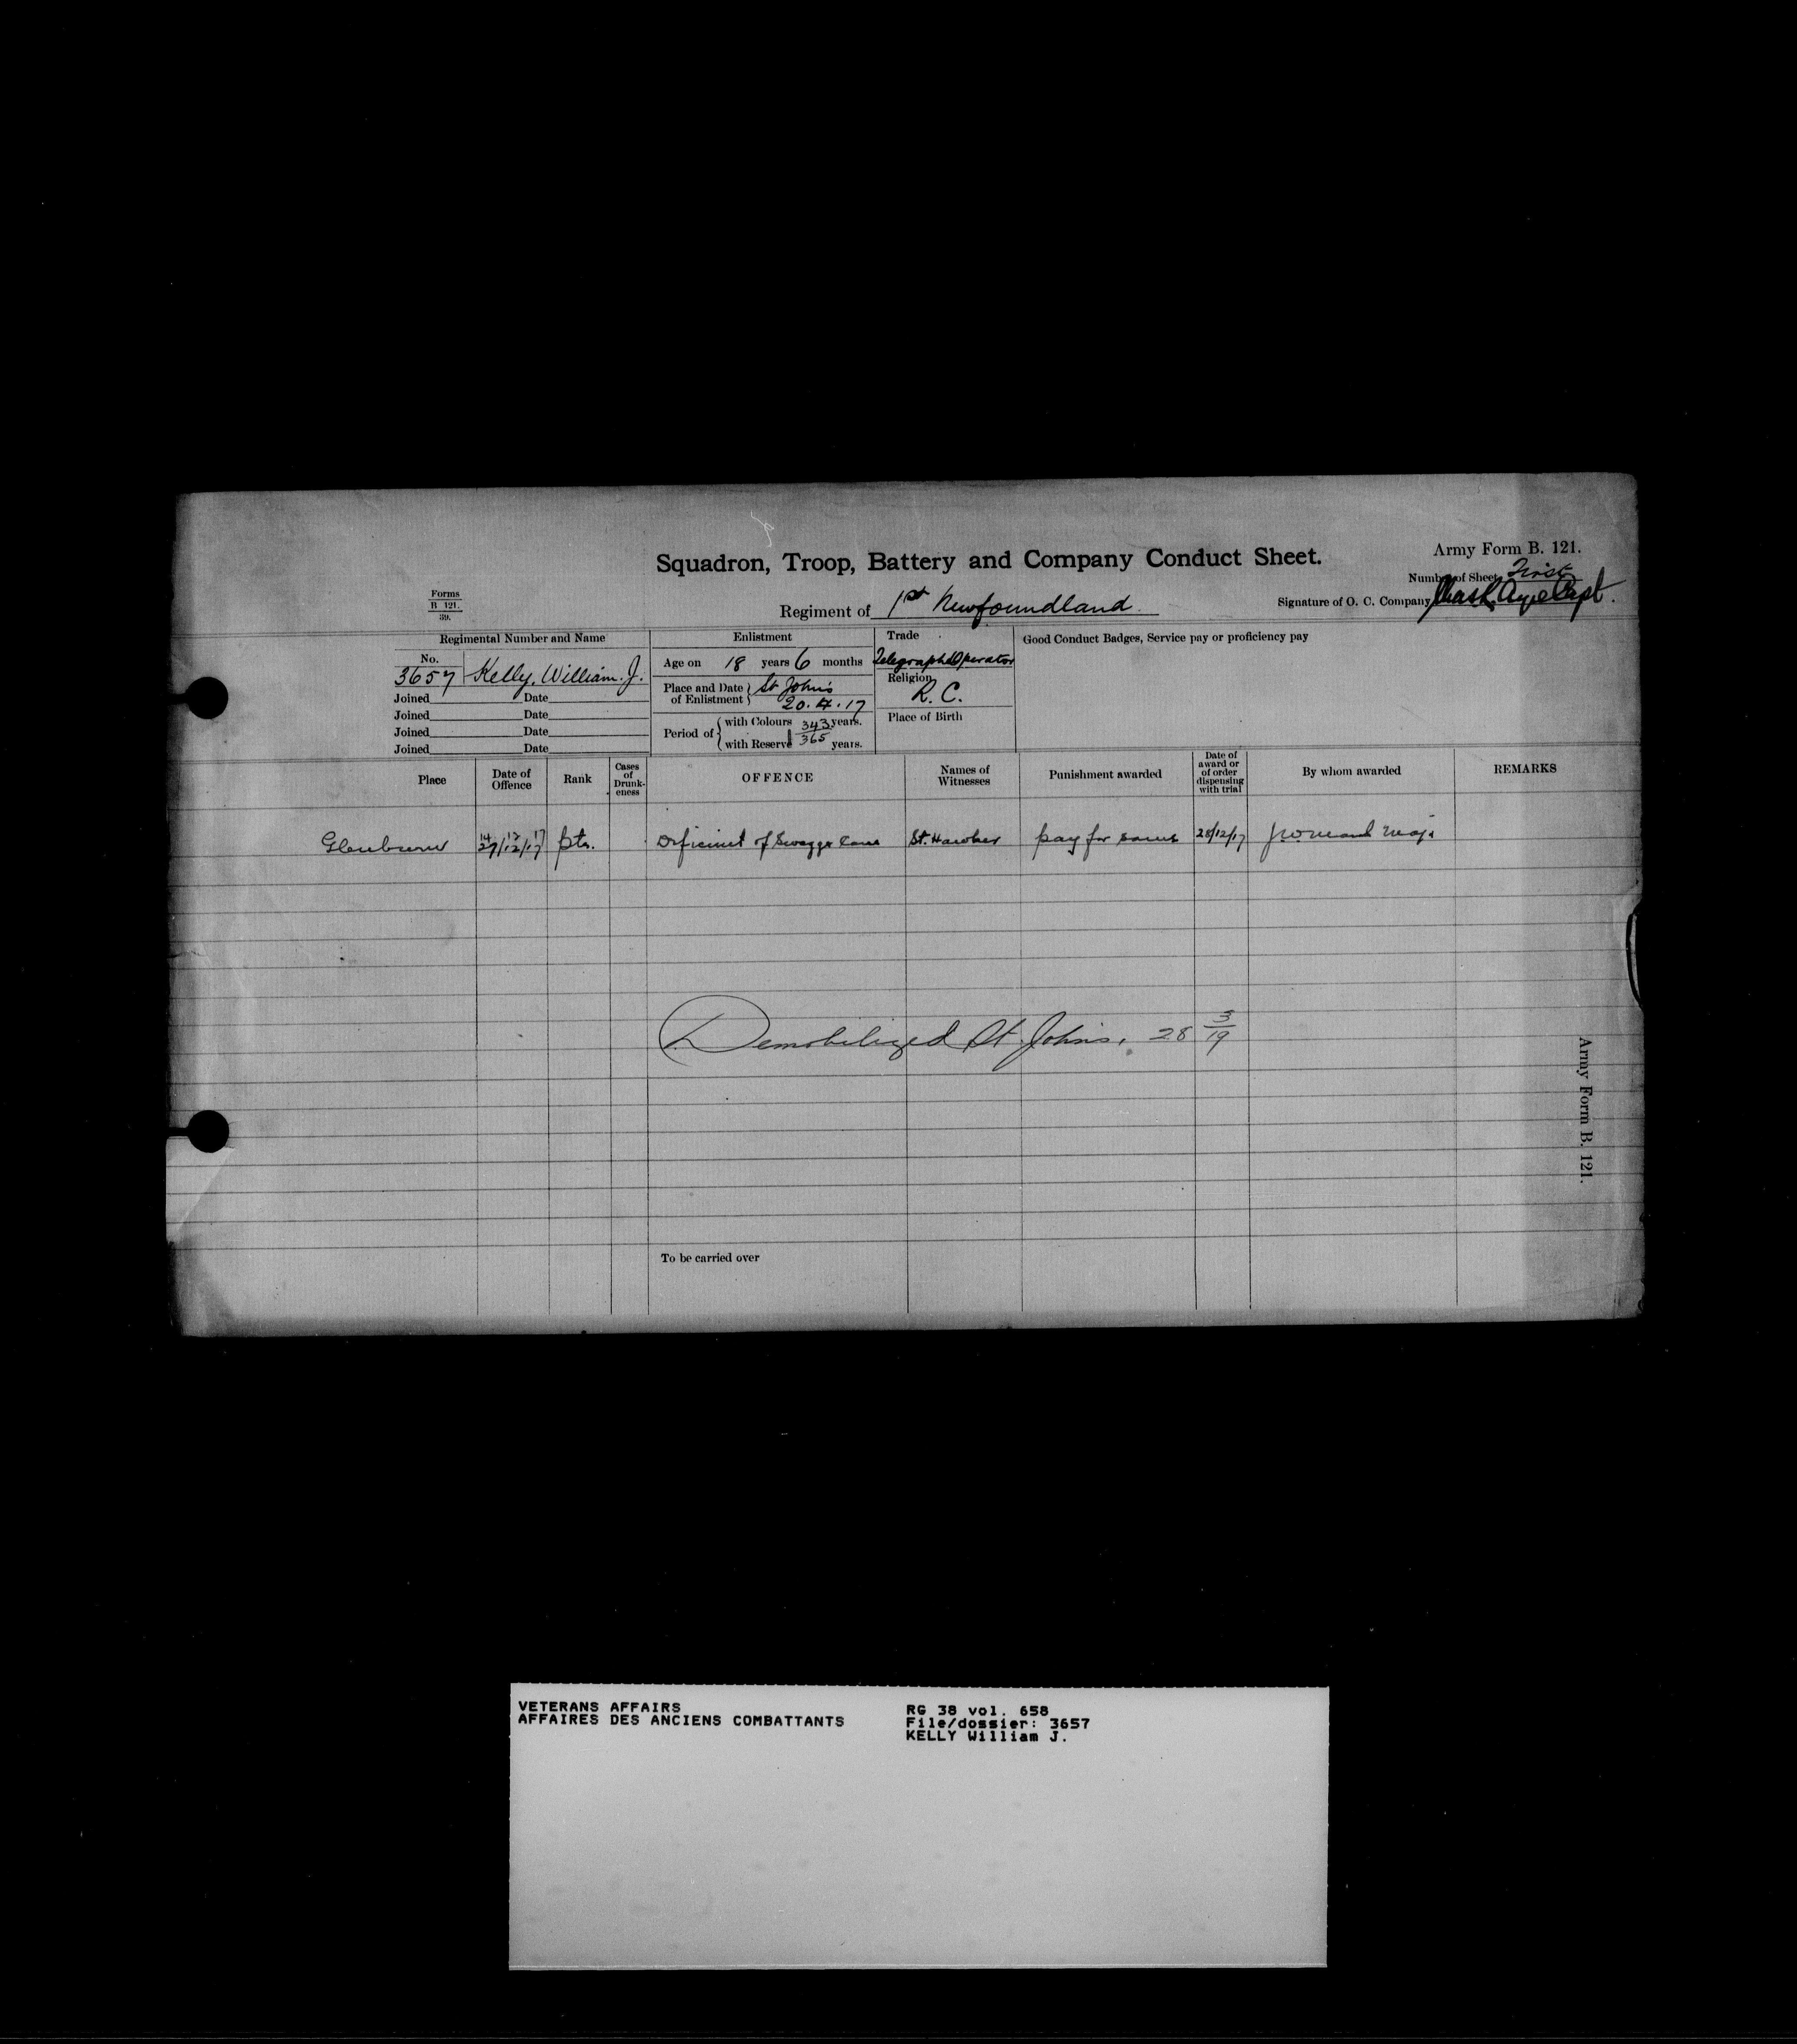 Squadron, Troop, Battery and Company Conduct Sheet.
Army Form B. 121.
Number of Sheet First
Forms
B 121.
39.
Regiment of 1st Newfoundland
Signature of O. C. Company Chas R. Ayre Capt.
Regimental Number and Name
No.
3657 Kelly, William. J.
Joined Date
Joined Date
Joined Date
Joined Date
Enlistment
Age on 18 years 6 months
Place and Date of Enlistment St John's
20.4.17
Period of with Colours 343 years.
with Reserve 365 years.
Trade
Telegraph Operator
Religion
R. C.
Place of Birth
Good Conduct Badges, Service pay or proficiency pay
Place Date of Offence Rank Cases of Drunk-eness OFFENCE Names of Witnesses Punishment awarded Date of award or of order dispensing with trial By whom awarded REMARKS
14 12 17
27/12/17 pte. Deficient of Swagger Cane St. Hawker pay for same 28/12/17 Maj.
Demobilized St. John's. 28 3/19
Army Form B. 121.
To be carried over
VETERANS AFFAIRS
AFFAIRES DES ANCIENS COMBATTANTS
RG 38 vol. 658
File/dossier: 3657
KELLY William J.